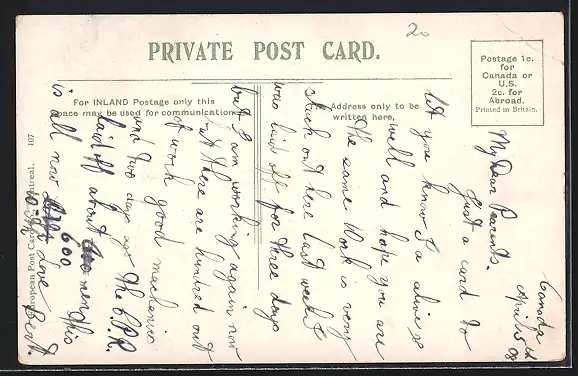 20
PRIVATE POST CARD.
Postage 1c.
for
Canada or
U.S.
2c. for
Abroad.
Printed in Britain.
For INLAND Postage only this
space may be used for communication.
The Address only to be
written here,
107
European Post Card Co., Montreal.
Canada
April 15 08
My Dear Parents.
Just a card to
let you know I a alive &
well and hope you are
the same Work is very
Slack out here last week I
was laid off for three days
but I am working again now
but there are hundred out
of work good mechanics
and two days ago the C.P.R.
laid off about
600 men this
is all now
Love Bert.